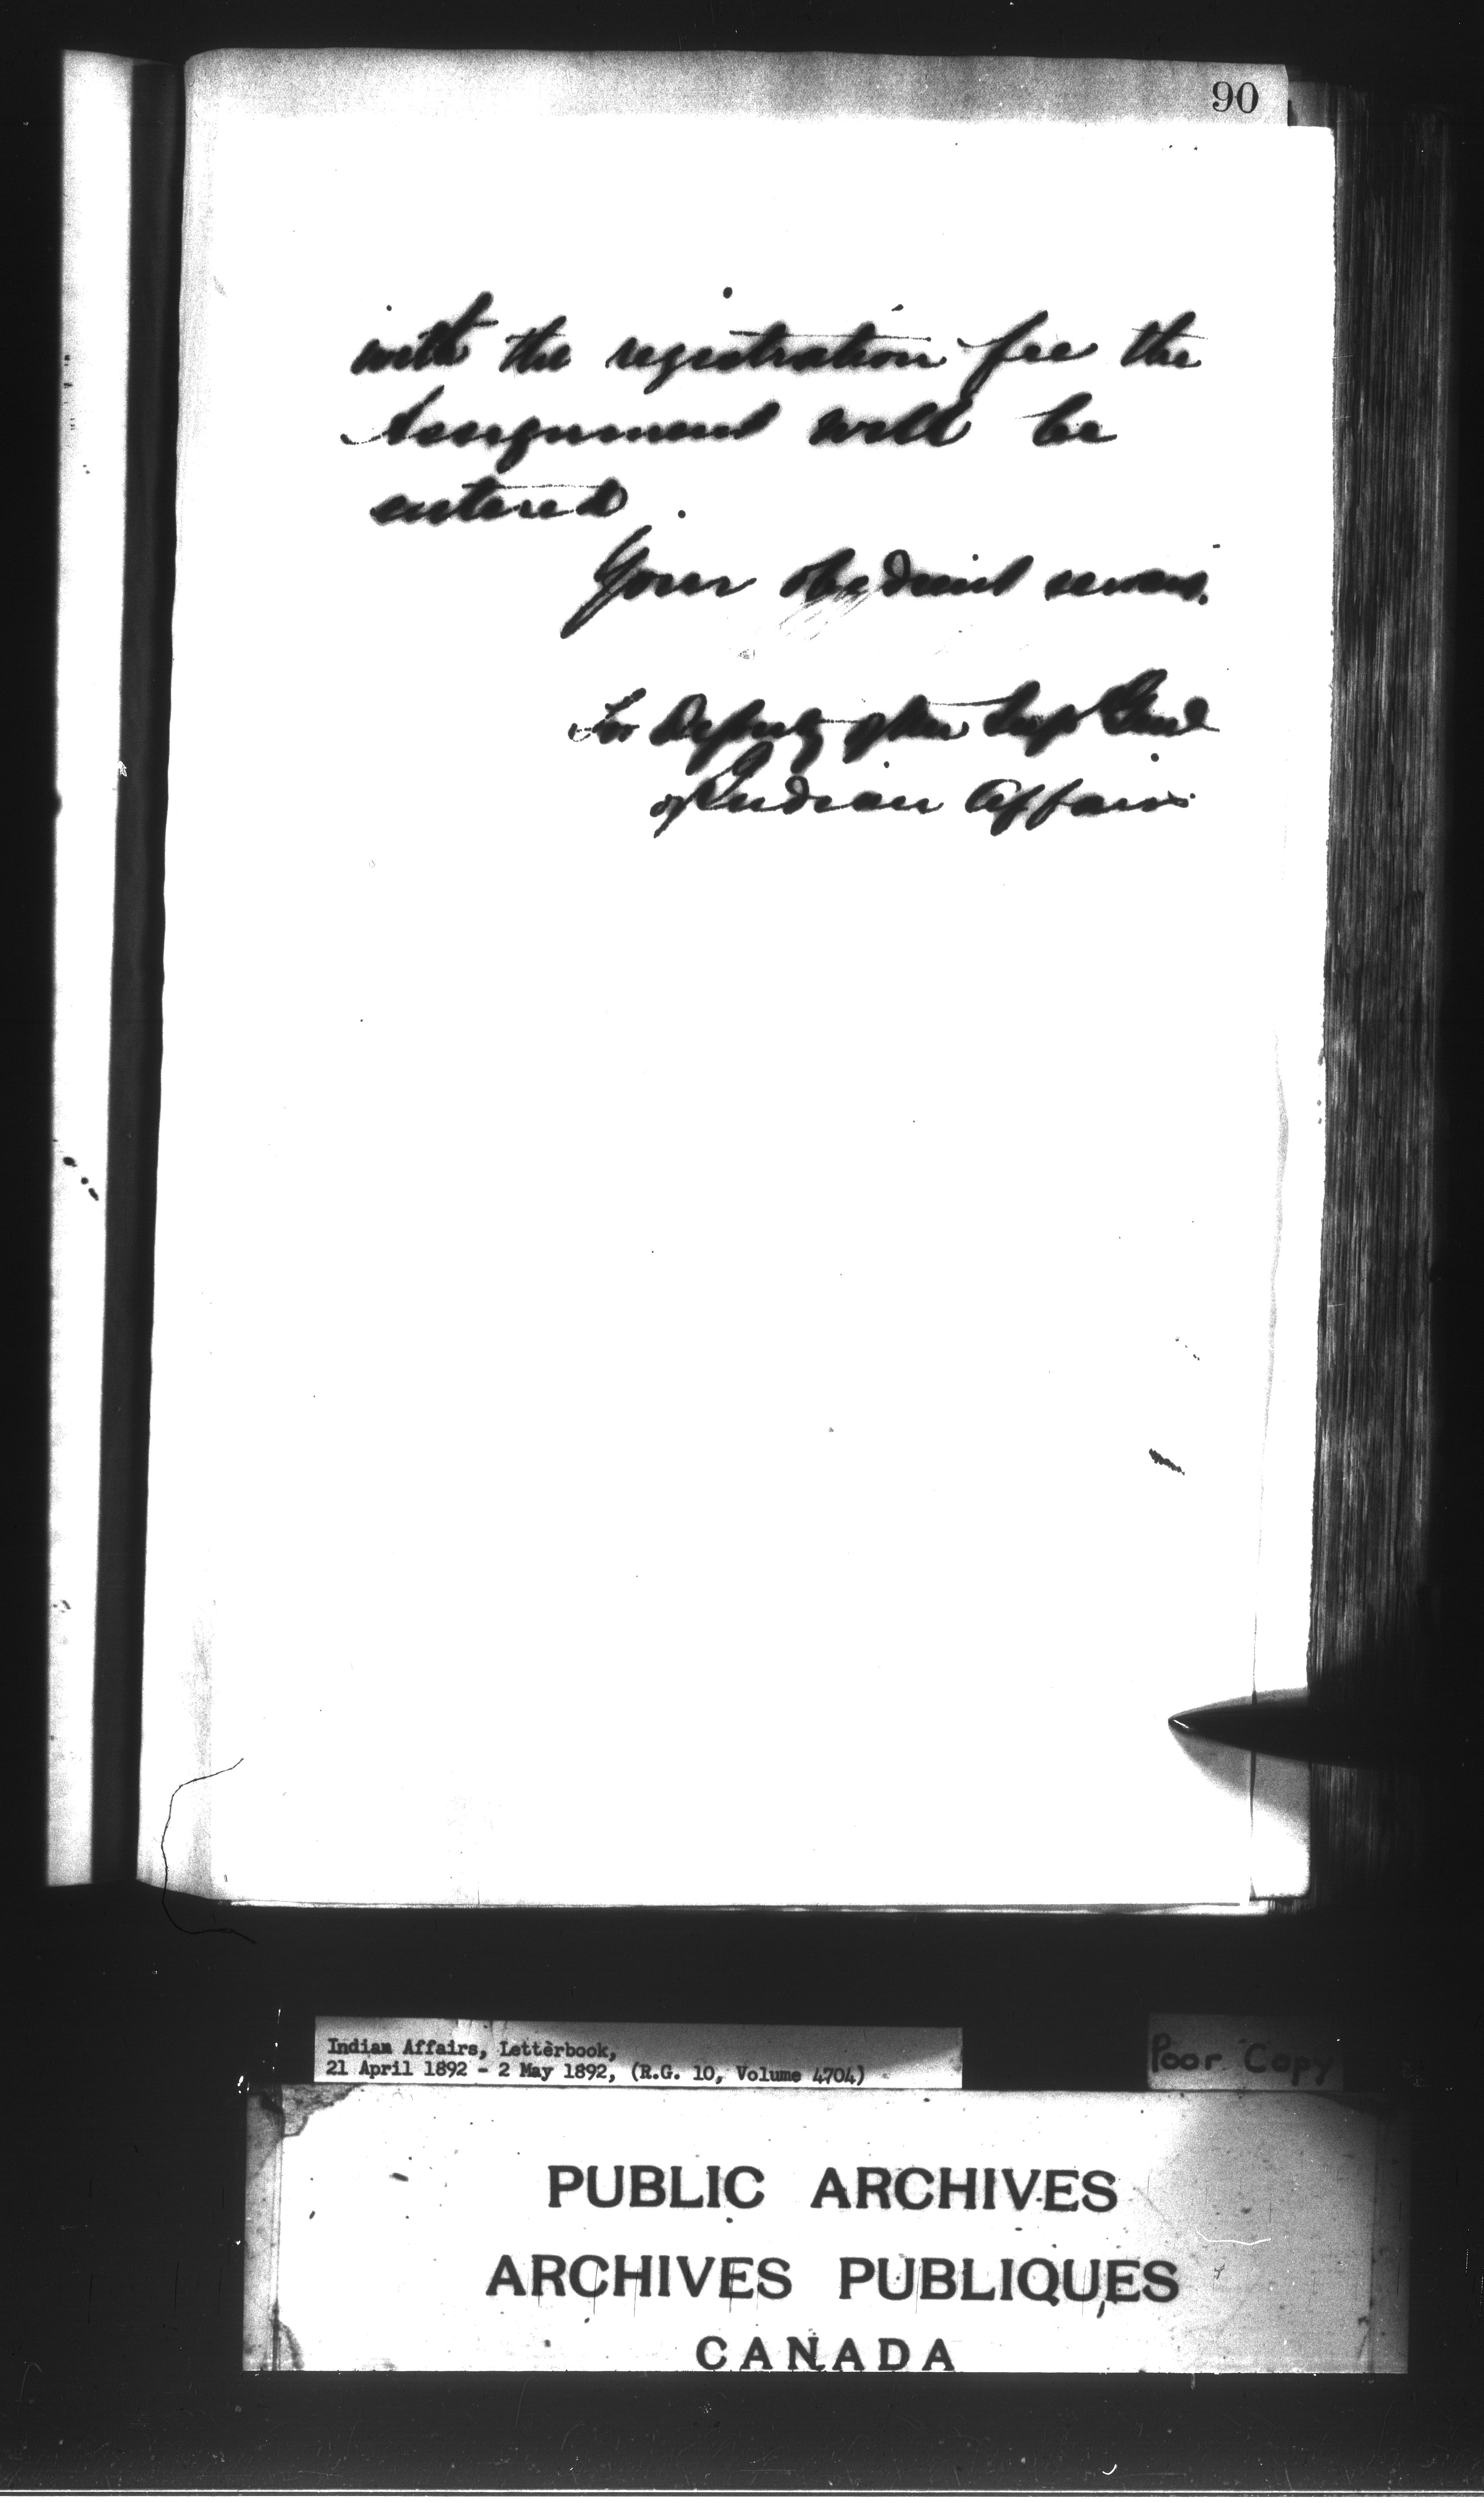 90
with the registration fee the
Assignment will be
entered.
Your obedient servant.
for Deputy of the Supt Genl
of Indian Affairs
Indian Affairs, Letterbook,
21 April 1892 - 2 May 1892, (R.G. 10, Volume 4704)
Poor Copy
PUBLIC ARCHIVES
ARCHIVES PUBLIQUES
CANADA